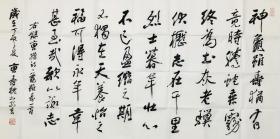 神龜雖壽猶有
竟時騰蛇乘霧
終為土灰老驥
伏櫪志在千里
烈士暮年壯心
不已盈縮之期
不獨在天養怡之
福可得永年幸
甚至哉歌以詠志